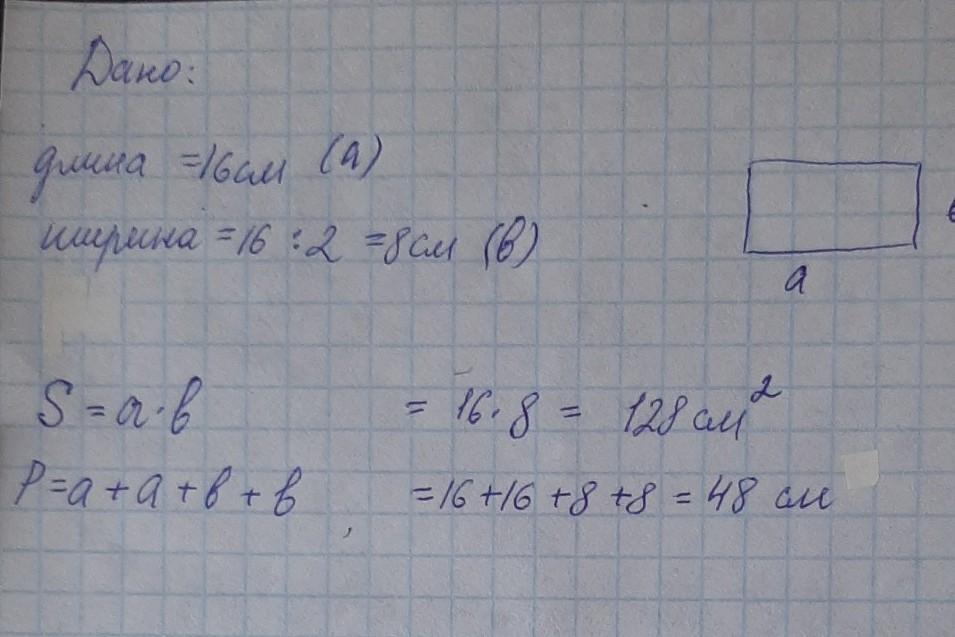 Дано:
длина =16см (а)
ширина =16 : 2 =8см (в)
а
S = а · в = 16 · 8 = 128 см²
P=а + а + в + в =16 +16 +8 +8 = 48 см